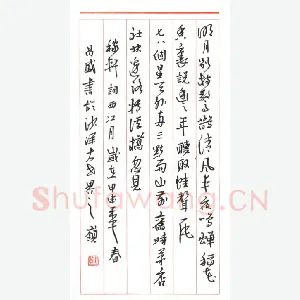 明月别枝惊鹊清风半夜鸣蝉稻花
香里说丰年听取蛙声一片
七八个星天外两三点雨山前旧时茅店
社林边路转溪桥忽见
稼轩词西江月岁在甲午春
昌盛书于
Shufawang.CN